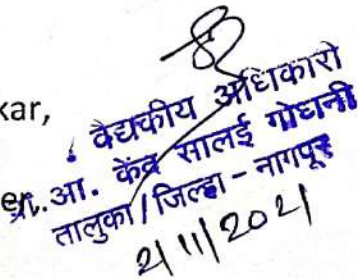 kar,
वैद्यकीय अधिकारी
er.
प्रा.आ. केंद्र सालई गोधनी
तालुका/जिल्हा - नागपूर
2/11/2021